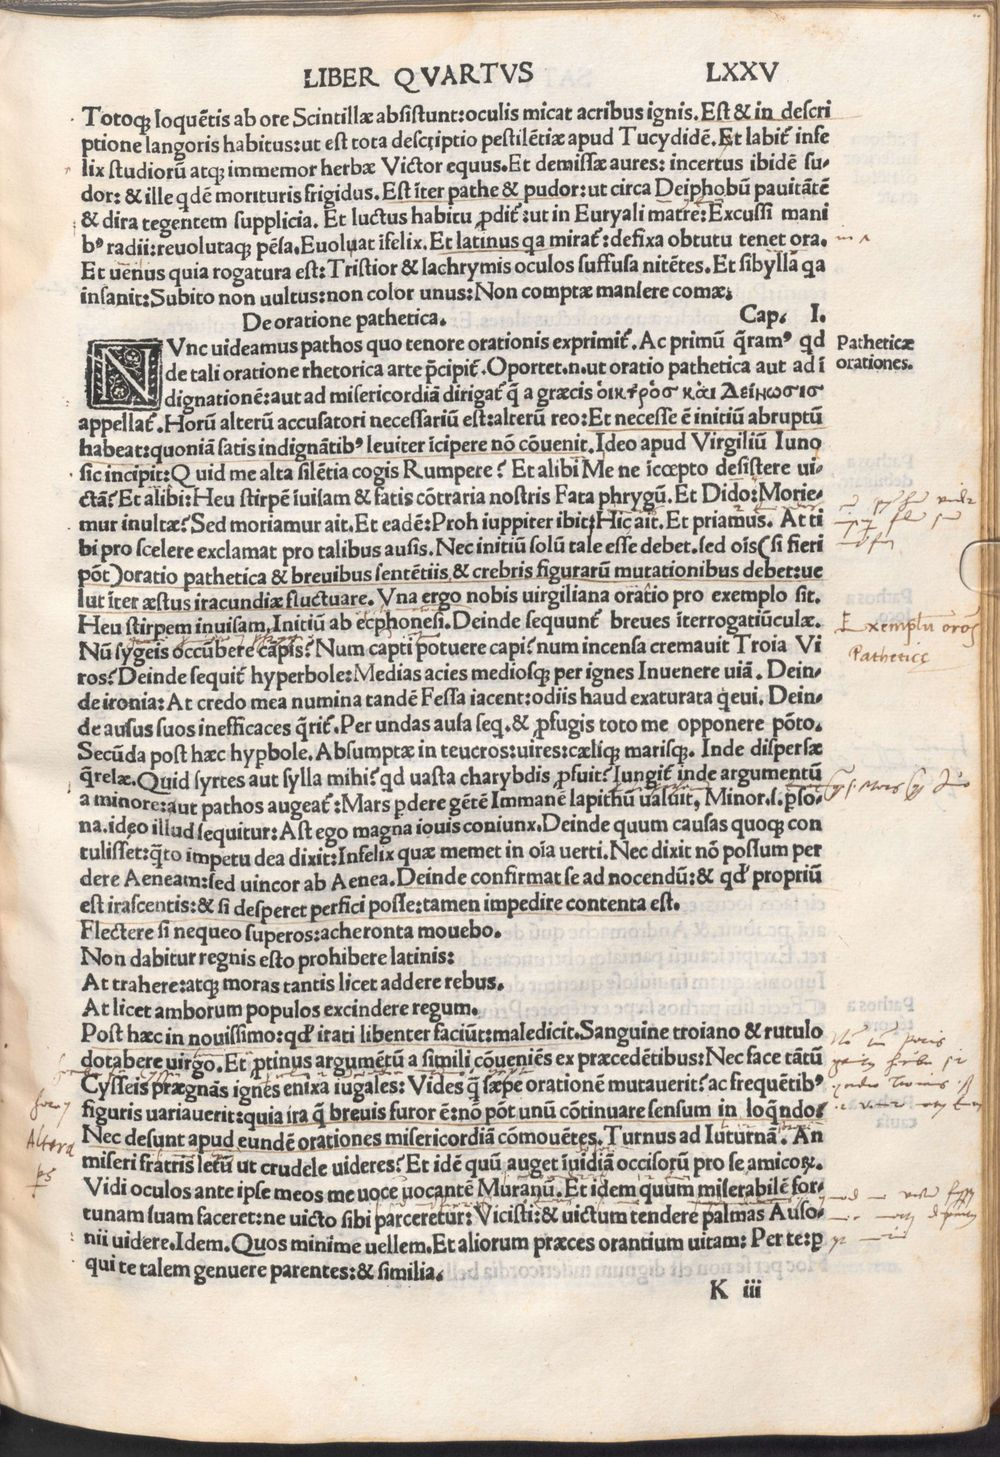 LIBER QVARTVS LXXV
Totoqꝫ loquẽtis ab ore Scintillæ absistunt:oculis micat acribus ignis.Est & in descri
ptione langoris habitus:ut est tota descriptio pestilẽtiæ apud Tucydidẽ.Et labit̃ infe
lix studiorũ atqꝫ immemor herbæ Victor equus.Et demissæ aures: incertus ibidẽ su-
dor: & ille qdẽ morituris frigidus.Est ĩter pathe & pudor:ut circa Deiphobũ pauitãtẽ
& dira tegentem supplicia. Et luctus habitu ꝓdit̃:ut in Euryali matre:Excussi mani
bꝰ radii:reuolutaqꝫ pẽsa.Euoluat ĩfelix.Et latinus qa mirat̃:defixa obtutu tenet ora.
Et uenus quia rogatura est:Tristior & lachrymis oculos suffusa nitẽtes.Et sibylla qa
insanit:Subito non uultus:non color unus:Non comptæ mansere comæ:
De oratione pathetica. Cap. I.
NVnc uideamus pathos quo tenore orationis exprimit̃.Ac primũ q̃ramꝰ qd
de tali oratione rhetorica arte p̃cipit̃.Oportet.n.ut oratio pathetica aut ad ĩ
dignationẽ:aut ad misericordiã dirigat̃ q̃ a græcis ὀικτρὸσ κὰι Δείνωσισ
appellat̃.Horũ alterũ accusatori necessariũ est:alterũ reo:Et necesse ẽ initiũ abruptũ
habeat:quoniã satis indignãtibꝰ leuiter ĩcipere nõ cõuenit.Ideo apud Virgiliũ Iuno
sic incipit:Quid me alta silẽtia cogis Rumpere? Et alibi Me ne ĩcœpto desistere ui-
ctã? Et alibi:Heu stirpẽ ĩuisam & fatis cõtraria nostris Fata phrygũ.Et Dido:Morie-
mur inultæ? Sed moriamur ait.Et eadẽ:Proh iuppiter ibit:Hic ait.Et priamus. At ti
bi pro scelere exclamat pro talibus ausis.Nec initiũ solũ tale esse debet.sed oĩs(si fieri
põt)oratio pathetica & breuibus sentẽtiis & crebris figurarũ mutationibus debet:ue
lut ĩter æstus iracundiæ fluctuare.Vna ergo nobis uirgiliana oratio pro exemplo sit.
Heu stirpem inuisam,Initiũ ab ecphonesi.Deinde sequunt̃ breues ĩterrogatiũculæ.
Nũ sygeis occũbere cãpis? Num capti potuere capi? num incensa cremauit Troia Vi
ros? Deinde sequit̃ hyperbole:Medias acies mediosqꝫ per ignes Inuenere uiã. Dein-
de ironia:At credo mea numina tandẽ Fessa iacent:odiis haud exaturata q̃eui. Dein-
de ausus suos inefficaces q̃rit̃.Per undas ausa seq.& ꝓfugis toto me opponere põto.
Secũda post hæc hyꝑbole.Absumptæ in teucros:uires:cæliqꝫ marisqꝫ. Inde dispersæ
q̃relæ.Quid syrtes aut sylla mihi? qd uasta charybdis ꝓfuit? Iungit̃ inde argumentũ
a minore:aut pathos augeat̃:Mars ꝑdere gẽtẽ Immanẽ lapithũ ualuit, Minor.s.ꝑso-
na.ideo illud sequitur:Ast ego magna iouis coniunx.Deinde quum causas quoqꝫ con
tulisset:q̃to impetu dea dixit:Infelix quæ memet in oĩa uerti.Nec dixit nõ possum per
dere Aeneam:sed uincor ab Aenea.Deinde confirmat se ad nocendũ:& qd' propriũ
est irascentis:& si desperet perfici posse:tamen impedire contenta est.
Flectere si nequeo superos:acheronta mouebo.
Non dabitur regnis esto prohibere latinis:
At trahere:atqꝫ moras tantis licet addere rebus.
At licet amborum populos excindere regum.
Post hæc in nouissimo:qd' irati libenter faciũt:maledicit.Sanguine troiano & rutulo
dotabere uirgo.Et ꝓtinus argumẽtũ a simili cõueniẽs ex præcedẽtibus:Nec face tãtũ
Cysseis prægnãs ignes enixa iugales: Vides q̃ sæpe orationẽ mutauerit? ac frequẽtibꝰ
figuris uariauerit:quia ira q̃ breuis furor ẽ:nõ põt unũ cõtinuare sensum in loq̃ndo:
Nec desunt apud eundẽ orationes misericordiã cõmouẽtes.Turnus ad Iuturnã. An
miseri fratris letũ ut crudele uideres? Et idẽ quũ auget ĩuidiã occisorũ pro se amicoꝝ.
Vidi oculos ante ipse meos me uoce uocantẽ Muranũ.Et idem quum miserabilẽ for-
tunam suam faceret:ne uicto sibi parceretur: Vicisti:& uictum tendere palmas Auso-
nii uidere.Idem.Quos minime uellem.Et aliorum præces orantium uitam: Per te:ꝑ
qui te talem genuere parentes:& similia.
K iii
Patheticæ
orationes.
Exemplũ
Pathetice
Altera